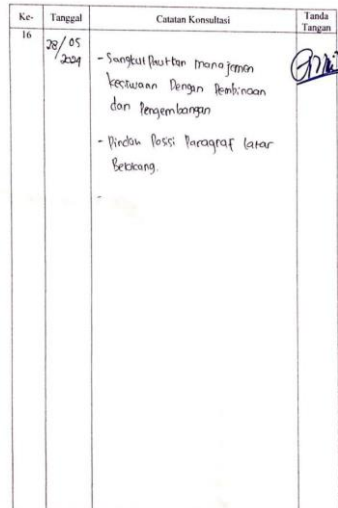 Ke-
Tanggal
Catatan Konsultasi
Tanda
Tangan
16
28/05
2024
- Sangkut Pautkan manajemen
kesiswaan Dengan Pembinaan
dan Pengembangan
- Pindah Posisi Paragraf latar
Belakang.
-